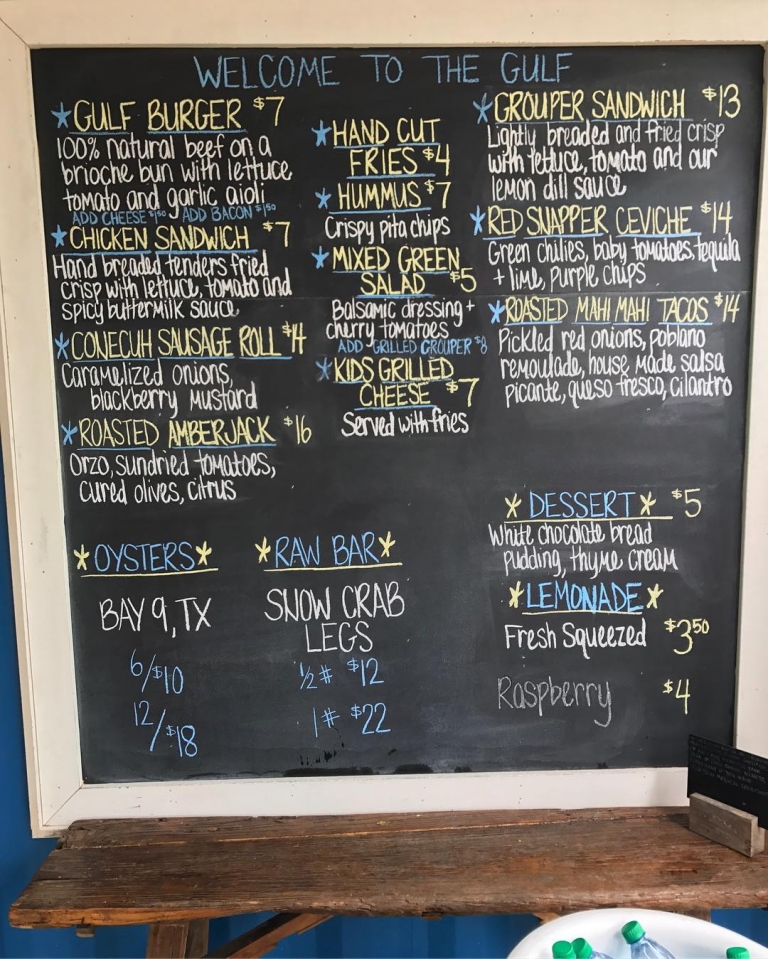 WELCOME TO THE GULF
*GULF BURGER $7
100% natural beef on a
brioche bun with lettuce
tomato and garlic aioli
ADD CHEESE $1.50 ADD BACON $1.50
*CHICKEN SANDWICH $7
Hand breaded tenders fried
crisp with lettuce, tomato and
spicy buttermilk sauce
*CONECUH SAUSAGE ROLL $14
Caramelized onions,
blackberry mustard
*ROASTED AMBERJACK $16
Orzo, sundried tomatoes,
cured olives, citrus
*HAND CUT
FRIES $4
*HUMMUS $7
Crispy pita chips
*MIXED GREEN
SALAD $5
Balsamic dressing +
cherry tomatoes
ADD GRILLED GROUPER $8
*KIDS GRILLED
CHEESE $7
Served with fries
*GROUPER SANDWICH $13
Lightly breaded and fried crisp
with lettuce, tomato and our
lemon dill sauce
*RED SNAPPER CEVICHE $14
Green chilies, baby tomatoes, tequila
+ lime, purple chips
*ROASTED MAHI MAHI TACOS $14
Pickled red onions, poblano
remoulade, house made salsa
picante, queso fresco, cilantro
*OYSTERS*
BAY 9, TX
6/$10
12/$18
*RAW BAR*
SNOW CRAB
LEGS
½# $12
1# $22
*DESSERT* $5
White chocolate bread
pudding, thyme cream
*LEMONADE*
Fresh Squeezed $3.50
Raspberry $4